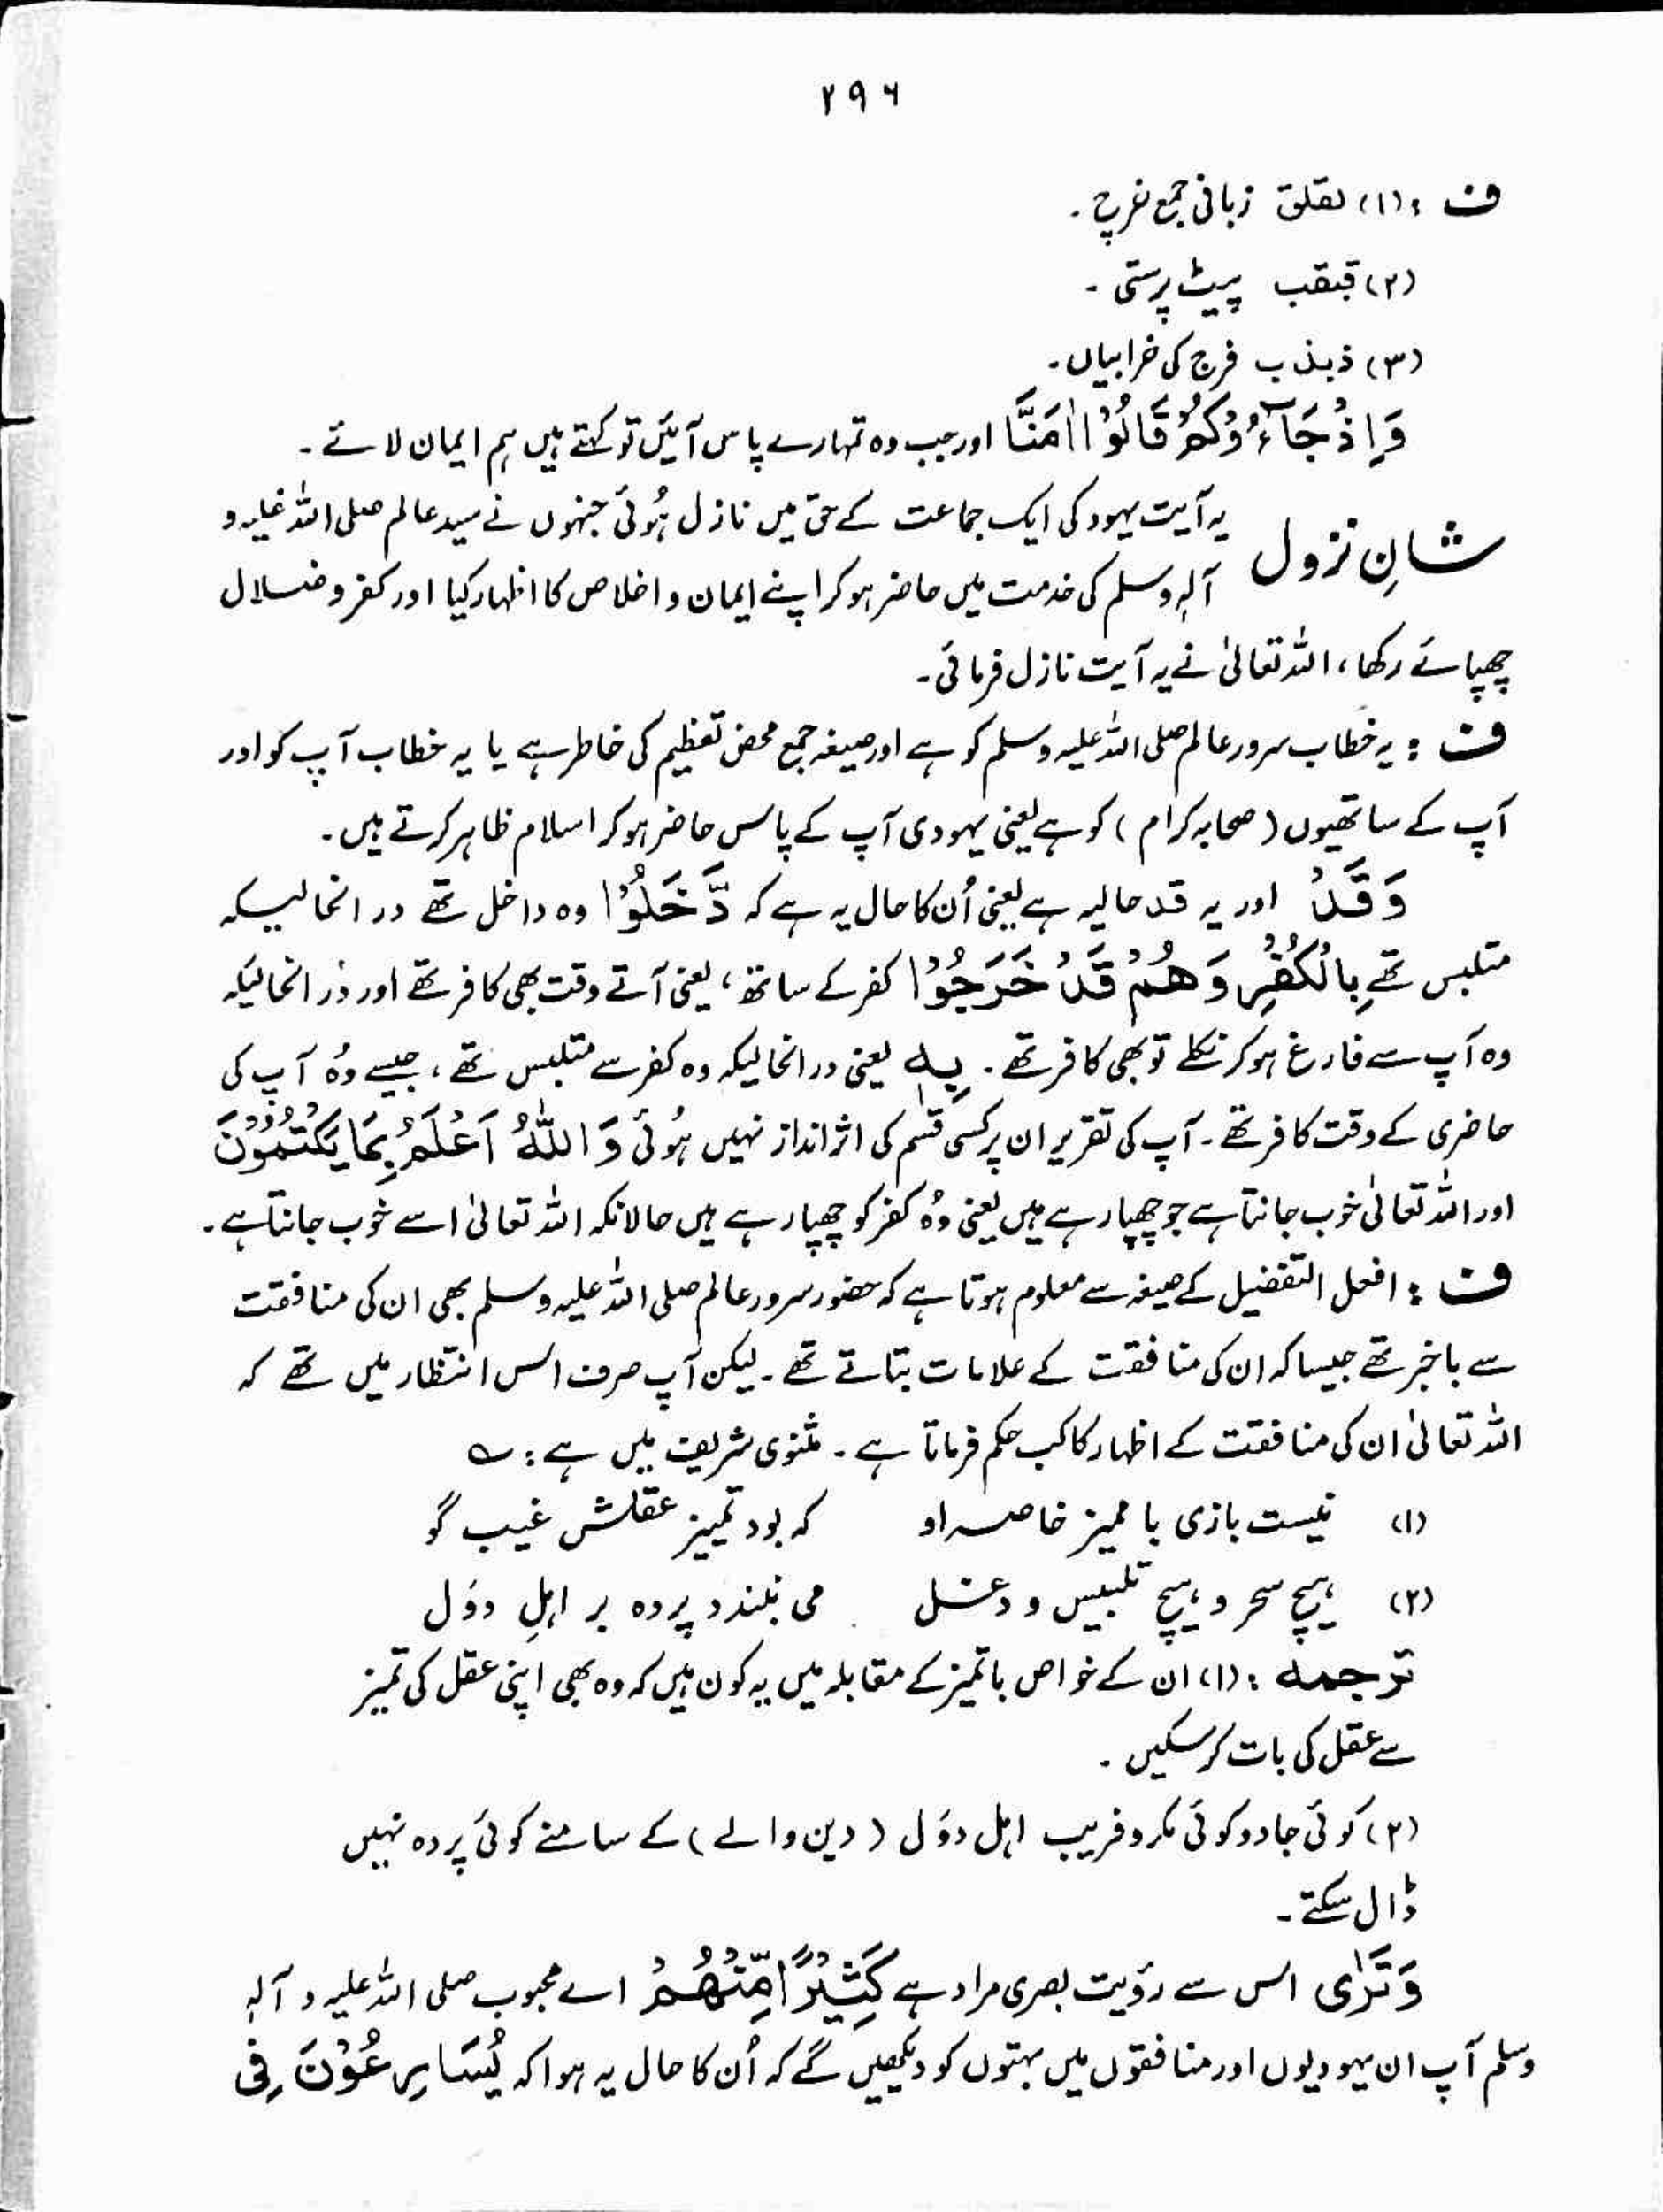 ۲۹۶
ف : (۱) لقلق زبانی جمع خرچ ۔
(۲) قبقب پیٹ پرستی ۔
(۳) ذبذب فرج کی خرابیاں ۔
وَإِذْ جَآءُوْكُمْ قَالُوْٓا اٰمَنَّا اور جب وہ تمہارے پاس آئیں تو کہتے ہیں ہم ایمان لائے ۔
شانِ نزول یہ آیت یہود کی ایک جماعت کے حق میں نازل ہُوئی جنہوں نے سید عالم صلی اللہ علیہ و
آلہٖ وسلم کی خدمت میں حاضر ہو کر اپنے ایمان و اخلاص کا اظہار کیا اور کفر و ضلال
چھپائے رکھا ، اللہ تعالیٰ نے یہ آیت نازل فرمائی ۔
ف : یہ خطاب سرور عالم صلی اللہ علیہ وسلم کو ہے اور صیغہ جمع محض تعظیم کی خاطر ہے یا یہ خطاب آپ کو اور
آپ کے ساتھیوں ( صحابہ کرام ) کو ہے یعنی یہودی آپ کے پاس حاضر ہو کر اسلام ظاہر کرتے ہیں ۔
وَقَدْ اور یہ قد حالیہ ہے یعنی اُن کا حال یہ ہے کہ دَّخَلُوْا وہ داخل تھے در انحالیکہ
متلبس تھے بِالْكُفْرِ وَهُمْ قَدْ خَرَجُوْا کفر کے ساتھ ، یعنی آتے وقت بھی کافر تھے اور در انحالیکہ
وہ آپ سے فارغ ہو کر نکلے تو بھی کافر تھے ۔ بِهٖ یعنی در انحالیکہ وہ کفر سے متلبس تھے ، جیسے وُہ آپ کی
حاضری کے وقت کافر تھے ۔ آپ کی تقریر ان پر کسی قسم کی اثر انداز نہیں ہُوئی وَاللّٰهُ اَعْلَمُ بِمَا يَكْتُمُوْنَ
اور اللہ تعالیٰ خوب جانتا ہے جو چھپا رہے ہیں یعنی وُہ کفر کو چھپا رہے ہیں حالانکہ اللہ تعالیٰ اسے خوب جانتا ہے ۔
ف : افعل التفضیل کے صیغہ سے معلوم ہوتا ہے کہ حضور سرور عالم صلی اللہ علیہ وسلم بھی ان کی منافقت
سے باخبر تھے جیسا کہ ان کی منافقت کے علامات بتاتے تھے ۔ لیکن آپ صرف اس انتظار میں تھے کہ
اللہ تعالیٰ ان کی منافقت کے اظہار کا کب حکم فرماتا ہے ۔ مثنوی شریف میں ہے : ؎
(۱) نیست بازی با ممیز خاصہ او کہ بود تمییز عقلش غیب گو
(۲) ہیچ سحر و ہیچ تلبیس و دغل می نبندد پردہ بر اہلِ دوَل
ترجمہ : (۱) ان کے خواص باتمیز کے مقابلہ میں یہ کون ہیں کہ وہ بھی اپنی عقل کی تمیز
سے عقل کی بات کر سکیں ۔
(۲) کوئی جادو کوئی مکر و فریب اہل دوَل ( دین والے ) کے سامنے کوئی پردہ نہیں
ڈال سکتے ۔
وَتَرٰى اس سے رؤیت بصری مراد ہے كَثِيْرًا مِّنْهُمْ اے محبوب صلی اللہ علیہ و آلہٖ
وسلم آپ ان یہودیوں اور منافقوں میں بہتوں کو دیکھیں گے کہ اُن کا حال یہ ہوا کہ يُسَارِعُوْنَ فِى